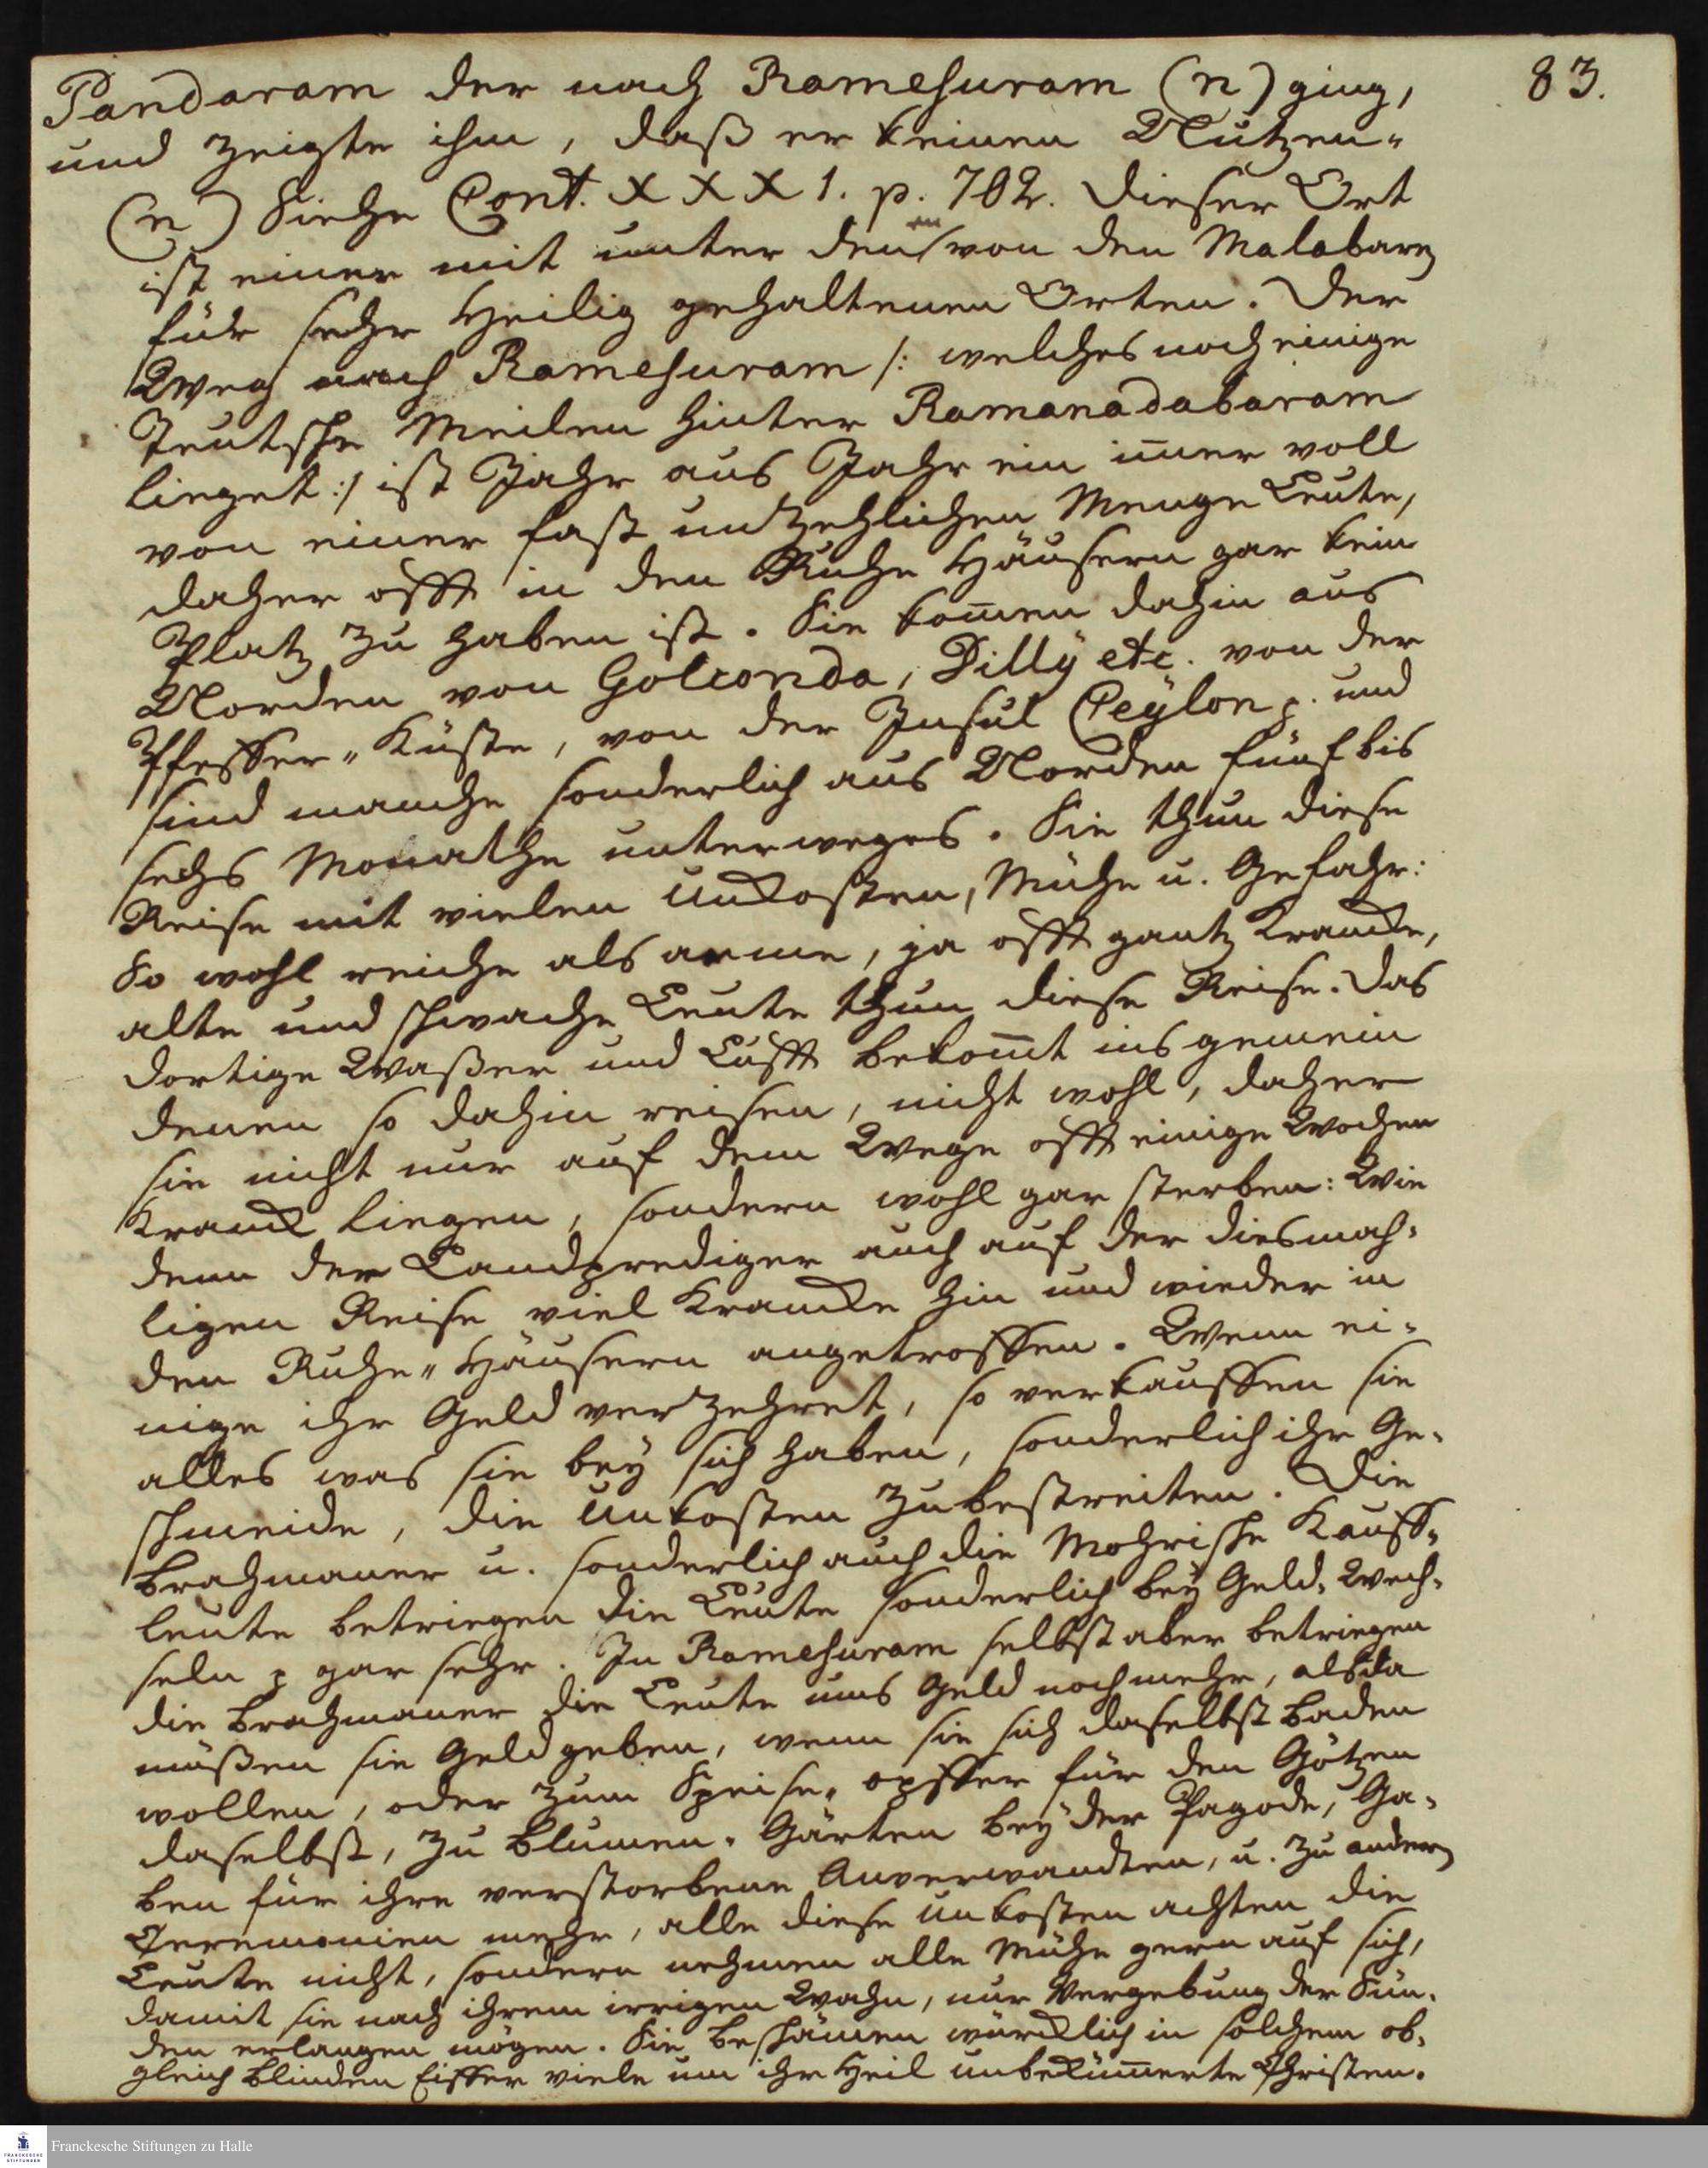 83.
Pandaram der nach Ramesuram (n) ging,
und zeigte ihm, daß er keinen Nutzen-
(n) Siehe Cont. XXXI. p. 702. dieser Ort
ist einer mit unter den von den Malabaren
für sehr Heilig gehaltenen Orten. Der
Weg nach Ramesuram /: welches noch einige
Teutsche Meilen hinter Ramanadabaram
lieget :/ ist Jahr aus Jahr ein im̅er voll
von einer fast unzehlichen Menge Leute,
daher offt in den Ruhe Häusern gar kein
Platz zu haben ist. Sie kom̅en dahin aus
Norden von Golconda, Dillÿ etc. von der
Pfeffer-Küste, von der Insul Ceÿlon p. und
sind manche sonderlich aus Norden fünf bis
sechs Monathe unterweges. Sie thun diese
Reise mit vielen Unkosten, Mühe u. Gefahr:
So wohl reiche als arme, ja offt gantz Krancke,
alte und schwache Leute thun diese Reise. Das
dortige Waßer und Lufft bekom̅t ins gemein
denen so dahin reisen, nicht wohl, daher
sie nicht nur auf dem Wege offt einige Wochen
Kranck liegen, sondern wohl gar sterben: Wie
denn der Landprediger auch auf der diesmah-
ligen Reise viel Krancke hin und wieder in
den Ruhe-Häusern angetroffen. Wenn ei-
nige ihr Geld verzehret, so verkauffen sie
alles was sie beÿ sich haben, sonderlich ihr Ge-
schmeide, die Unkosten zu bestreiten. Die
Brahmaner u. sonderlich auch die Mohrische Kauff-
leute betriegen die Leute sonderlich beÿ Geld-Wech-
seln p gar sehr. In Ramesuram selbst aber betriegen
die Brahmaner die Leute ums Geld noch mehr, alsda
müßen sie Geld geben, wenn sie sich daselbst baden
wollen, oder zum Speise-opffer für den Götzen
daselbst, zu Blumen-Gärten beÿ der Pagode, Ga-
ben für ihre verstorbene Anverwandten, u. zu andern
Ceremonien mehr, alle diese Unkosten achten die
Leute nicht, sondern nehmen alle Mühe gern auf sich,
damit sie nach ihrem irrigen Wahn, nur Vergebung der Sün-
den erlangen mögen. Sie beschämen würcklich in solchem ob-
gleich blinden Eiffer viele um ihr Heil unbeküm̅erte Christen.
Franckesche Stiftungen zu Halle
FRANCKESCHE
STIFTUNGEN